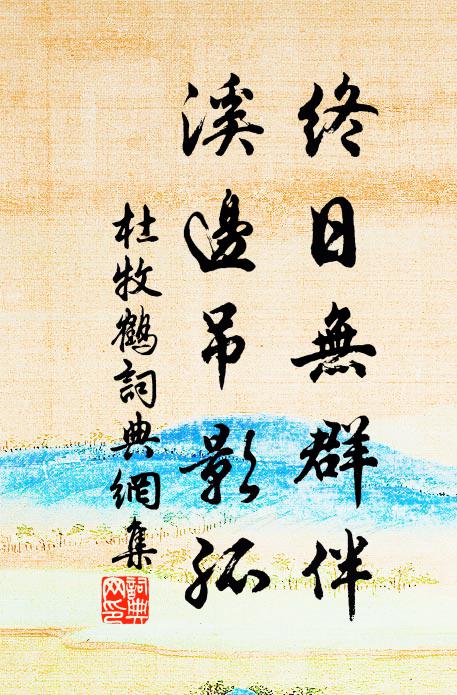 終日無群伴
溪邊吊影孤
杜牧鶴詞典網集
詞典網印